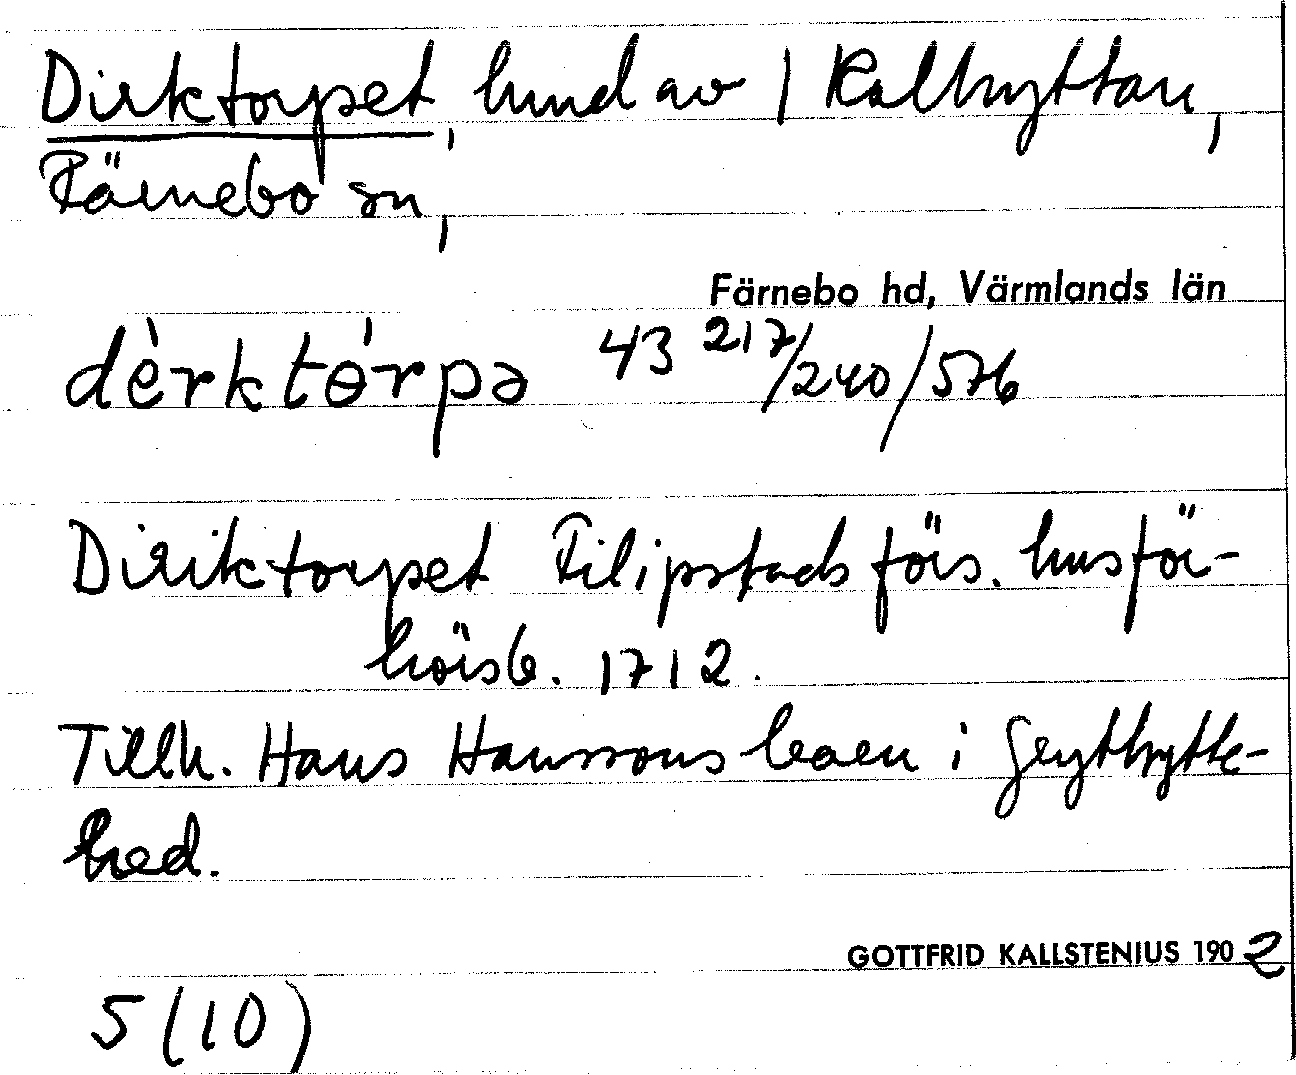 Dirktorpet, hmd av 1 Kalhyttan,
Färnebo sn,
Färnebo hd, Värmlands län
dèrktɵ́rpə 43 217/240/576
Diriktorpet Filipstads förs. husför-
hörsb. 1712.
Tillh. Hans Hanssons i Grythytte-
hed.
GOTTFRID KALLSTENIUS 1902
5 (10)